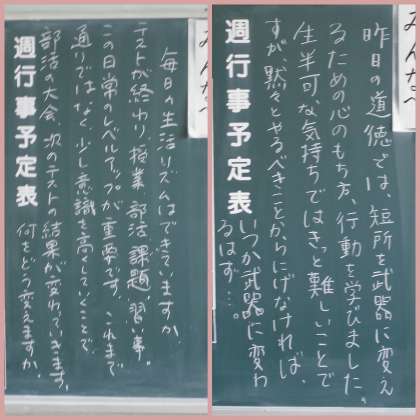 毎日の生活リズムはできていますか。
テストが終わり、授業、部活、課題、習い事。
この日常のレベルアップが重要です。これまで
通りではなく、少し意識を高していくことで、
部活の大会、次のテストの結果が変わっていきます。
何をどう変えますか。
週行事予定表
昨日の道徳では、短所を武器に変え
るための心のもち方、行動を学びました。
生半可な気持ちではきっと難しいことで
すが、黙々とやるべきことからにげなければ、
いつか武器に変わ
るはず…。
週行事予定表